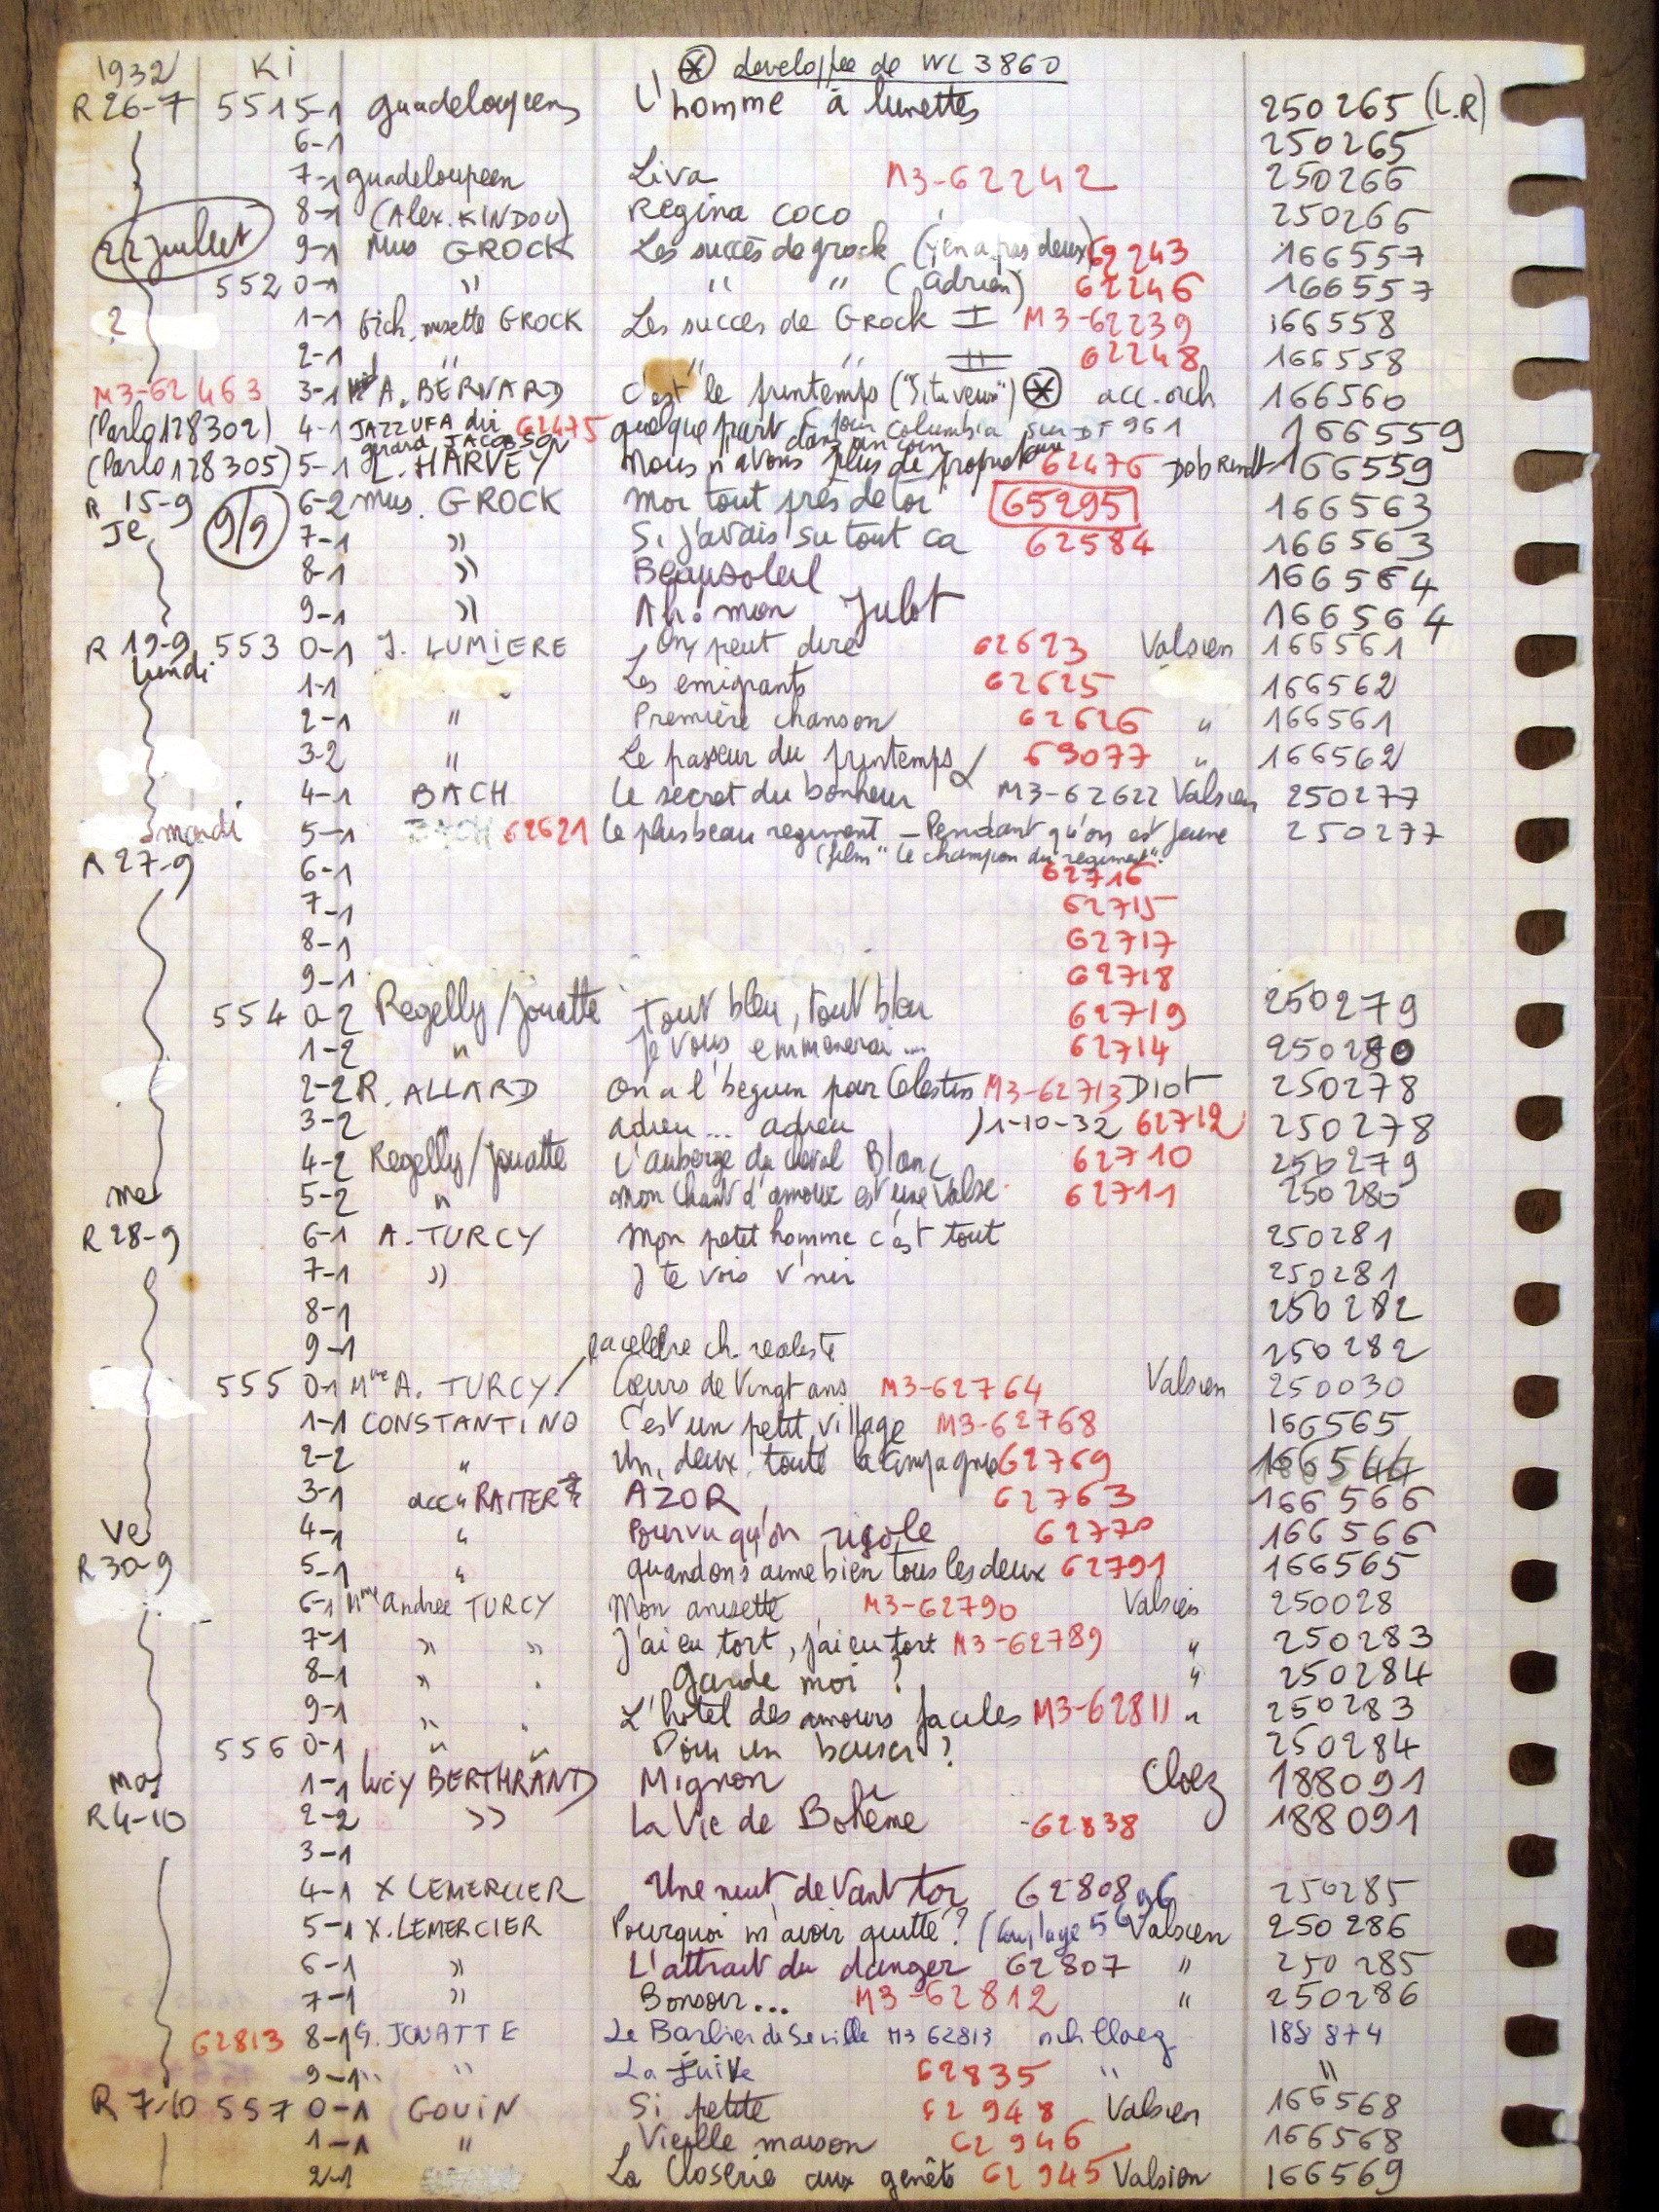 1932 KI ⊛ developpée de WL 3860
R 26-7 551 5-1 guadeloupeens L'homme à lunettes 250265 (L.R)
6-1 250265
7-1 guadeloupeen Liva M3-62242 250266
8-1 (Alex. KINDOU) Regina COCO 250266
22 juillet 9-1 Mus GROCK Les succès de grock (y en a pas deux) 62243 166557
552 0-1 " " " (Adrien) 62246 166557
? 1-1 musette GROCK Les succès de Grock I M3-62239 166558
2-1 " " " II 62248 166558
M3-62463 3-1 A. BERNARD C'est le printemps ("Si tu veux") ⊛ acc. orch 166560
(Parlo 128302) 4-1 JAZZ UFA dir gerard JACOBSON 62475 quelque part dans un coin pour Columbia sur DF 961 166559
(Parlo 128305) 5-1 L. HARVEY Nous n'avons plus de 62476 166559
R 15-9 9/9 6-2 mus. GROCK Moi tout près de toi 65295 166563
Je 7-1 " Si j'avais su tout ca 62584 166563
8-1 " Beausoleil 166564
9-1 " Ah! mon Julot 166564
R 19-9 553 0-1 J. LUMIERE On peut dire 62623 Valsien 166561
lundi 1-1 Les emigrants 62625 166562
2-1 " Première chanson 62626 " 166561
3-2 " Le passeur du printemps 63077 " 166562
4-1 BACH Le secret du bonheur M3-62622 Valsien 250277
mardi 5-1 BACH 62621 Le plus beau regiment - Pendant qu'on est jeune 250277
(film "le champion du regiment".
R 27-9 6-1 62716
7-1 62715
8-1 62717
9-1 62718
554 0-2 Regelly/Jouatte Tout bleu, tout bleu 62719 250279
1-2 " Je vous emmenerai ... 62714 250280
2-2 R. ALLARD On a l'beguin pour Celestin M3-62713 Diot 250278
3-2 " adieu ... adieu )1-10-32 62712 250278
4-2 Regelly/Jouatte L'auberge du cheval Blanc 62710 250279
me 5-2 " Mon chant d'amour est une Valse 62711 250280
R 28-9 6-1 A. TURCY Mon petit homme c'est tout 250281
7-1 " J te vois v'nir 250281
8-1 250282
9-1 ch. realiste 250282
555 0-1 Mme A. TURCY Cœurs de Vingt ans M3-62764 Valsien 250030
1-1 CONSTANTINO C'est un petit village M3-62768 166565
2-2 " Un, deux, toute la compagnie 62769 166544
3-1 acc" RAITER AZOR 62763 166566
Ve 4-1 " Pourvu qu'on rigole 62770 166566
R 30-9 5-1 " quand on s'aime bien tous les deux 62791 166565
6-1 Mme Andree TURCY Mon anisette M3-62790 Valsien 250028
7-1 " " J'ai eu tort, j'ai eu tort M3-62789 " 250283
8-1 " Garde moi ? " 250284
9-1 " L'hotel des amours faciles M3-62811 " 250283
556 0-1 " " Pour un baiser ? 250284
Ma 1-1 Lucy BERTHRAND Mignon Cloez 188091
R 4-10 2-2 " La Vie de Bohème 62838 188091
3-1
4-1 X LEMERCIER Une nuit devant toi 62808 250285
5-1 X. LEMERCIER Pourquoi m'avoir quitté ? (couplage 5696 Valsien 250286
6-1 " L'attrait du danger 62807 " 250285
7-1 " Bonsoir... M3-62812 " 250286
62813 8-1 G. JOUATTE Le Barbier de Seville M3 62813 Cloez 188874
9-1 " " La Juive 62835 " "
R 7-10 557 0-1 GOUIN Si petite 62948 Valsien 166568
1-1 " Vieille maison 62946 166568
2-1 La Closerie aux genêts 62945 Valsien 166569